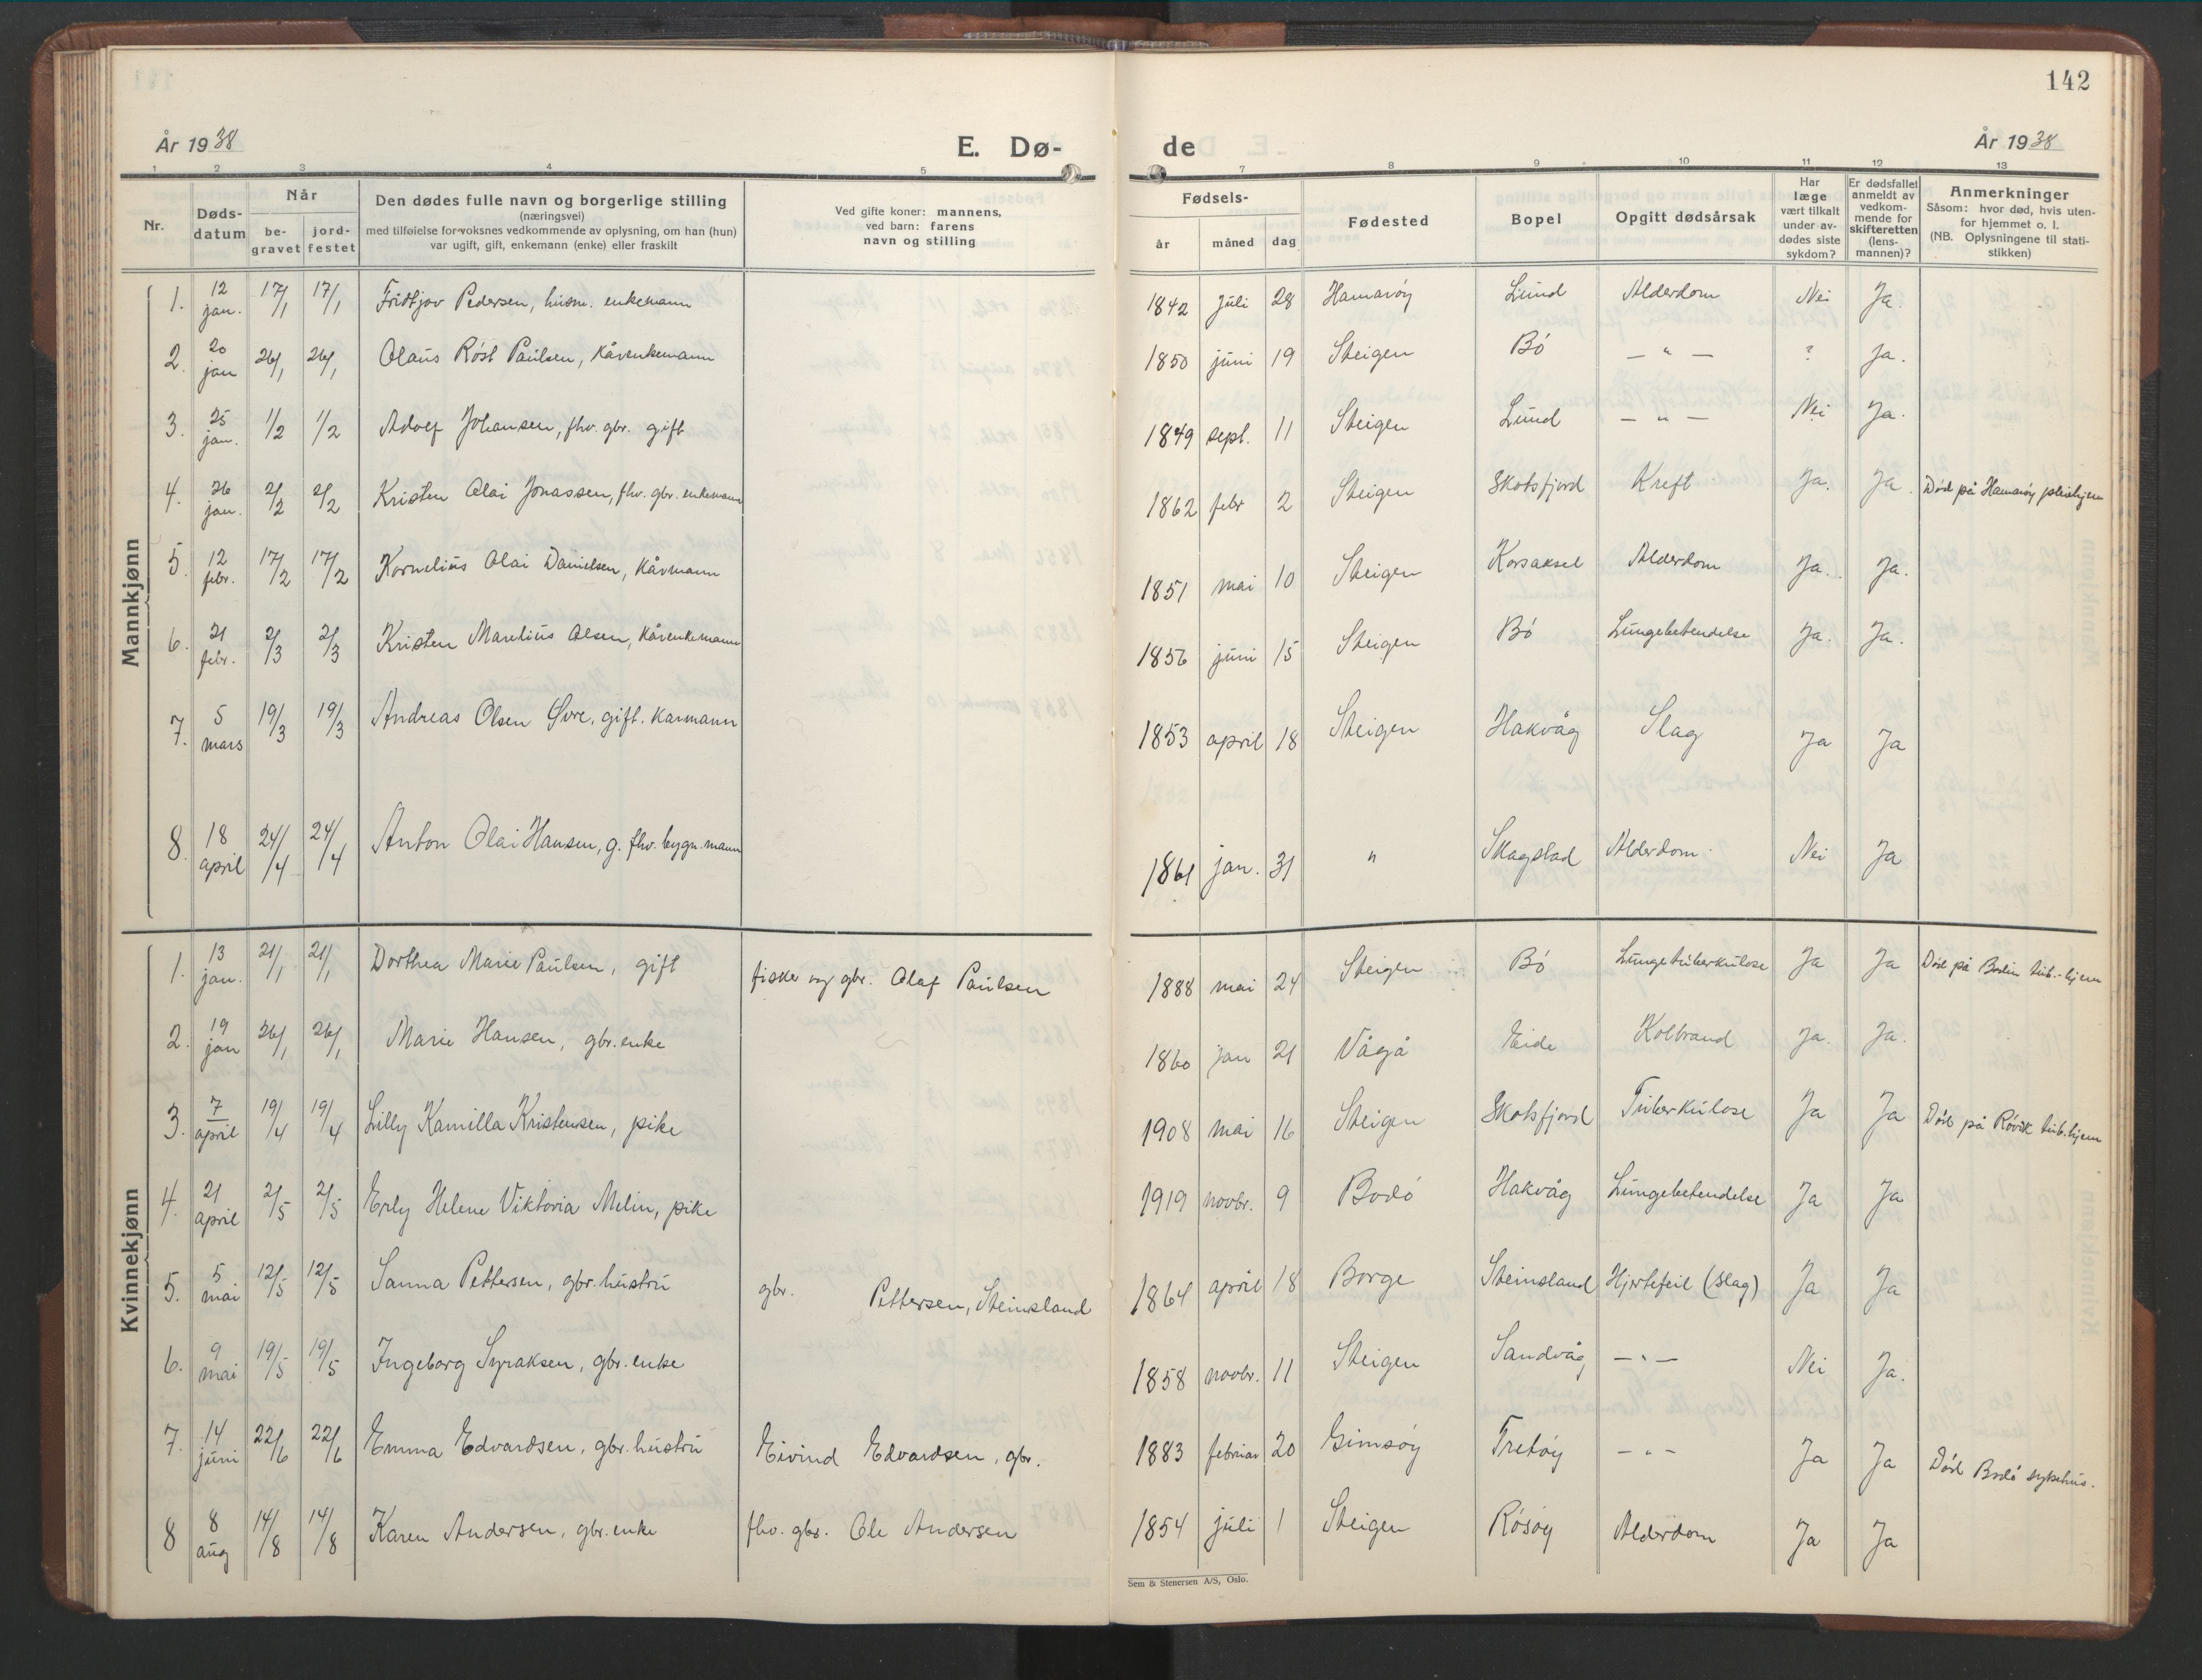 142
År 1938 E. Dø- de År 1938
1 2 3 4 5 7 8 9 10 11 12 13
Nr.
Døds-
datum
Når
be-
gravet
jord-
festet
Den dødes fulle navn og borgerlige stilling
(næringsvei)
med tilføielse for voksnes vedkommende av oplysning, om han (hun)
var ugift, gift, enkemann (enke) eller fraskilt
Ved gifte koner: mannens,
ved barn: farens
navn og stilling
Fødsels-
år måned dag
Fødested
Bopel
Opgitt dødsårsak
Har
læge
vært tilkalt
under av-
dødes siste
sykdom?
Er dødsfallet
anmeldt av
vedkom-
mende for
skifteretten
(lens-
mannen)?
Anmerkninger
Såsom: hvor død, hvis uten-
for hjemmet o. l.
(NB. Oplysningene til stati-
stikken)
Mannkjønn
1. 12 jan. 17/1 17/1 Fridtjov Pedersen, husm. enkemann 1842 juli 28 Hamarøy Lund Alderdom Nei Ja.
2. 20 jan 26/1 26/1 Olaus Røst Paulsen, kårenkemann 1850 juni 19 Steigen Bø — " — ? Ja.
3. 25 jan. 1/2 1/2 Adolf Johansen, fhv. gbr. gift 1849 sept. 11 Steigen Lund — " — Nei Ja.
4. 26 jan. 2/2 2/2 Kristen Olai Jonassen, fhv. gbr. enkemann 1862 febr 2 Steigen Skotsfjord Kreft Ja. Ja. Død på Hamarøy pleiehjem
5. 12 febr. 17/2 17/2 Kornelius Olai Danielsen, kårmann 1851 mai 10 Steigen Korsaksel Alderdom Ja. Ja.
6. 21 febr. 2/3 2/3 Kristen Marelius Olsen, kårenkemann 1856 juni 15 Steigen Bø Lungebetendelse Ja. Ja.
7. 5 mars 19/3 19/3 Andreas Olsen Øvre, gift. karmann 1853 april 18 Steigen Hakvåg Slag Ja Ja
8. 18 april 24/4 24/4 Anton Olai Hansen, g. fhv. bygn.mann 1861 jan. 31 " Skagstad Alderdom. Nei Ja
Kvinnekjønn
1. 13 jan. 21/1 21/1 Dorthea Marie Paulsen, gift fisker og gbr. Olaf Paulsen 1888 mai 24 Steigen Bø Lungetuberkulose Ja Ja Død på Bodin tub.-hjem
2. 19 jan 26/1 26/1 Marie Hansen, gbr. enke 1860 jan 21 Vågå Eide Kolbrand Ja. Ja.
3. 7 april 19/4 19/4 Lilly Kamilla Kristensen, pike 1908 mai 16 Steigen Skotsfjord Tuberkulose Ja Ja Død på Røvik tub.hjem
4. 21 april 2/5 2/5 Erly Helene Viktoria Melin, pike 1919 novbr. 9 Bodø Hakvåg Lungebetendelse Ja Ja
5. 5 mai 12/5 12/5 Sanna Pettersen, gbr. hustru gbr. Pettersen, Steinsland 1864 april 18 Borge Steinsland Hjertefeil (slag) Ja Ja
6. 9 mai 19/5 19/5 Ingeborg Syraksen, gbr. enke 1858 novbr. 11 Steigen Sandvåg — " — Nei Ja.
7. 14 juni 22/6 22/6 Emma Edvardsen, gbr. hustru Eivind Edvardsen, gbr. 1883 februar 20 Gimsøy Tretøy — " — Ja Ja Død Bodø sykehus.
8 8 aug 14/8 14/8 Karen Andersen, gbr. enke fhv. gbr. Ole Andersen 1854 juli 1 Steigen Røsøy Alderdom Ja Ja
Sem & Stenersen A/S, Oslo.